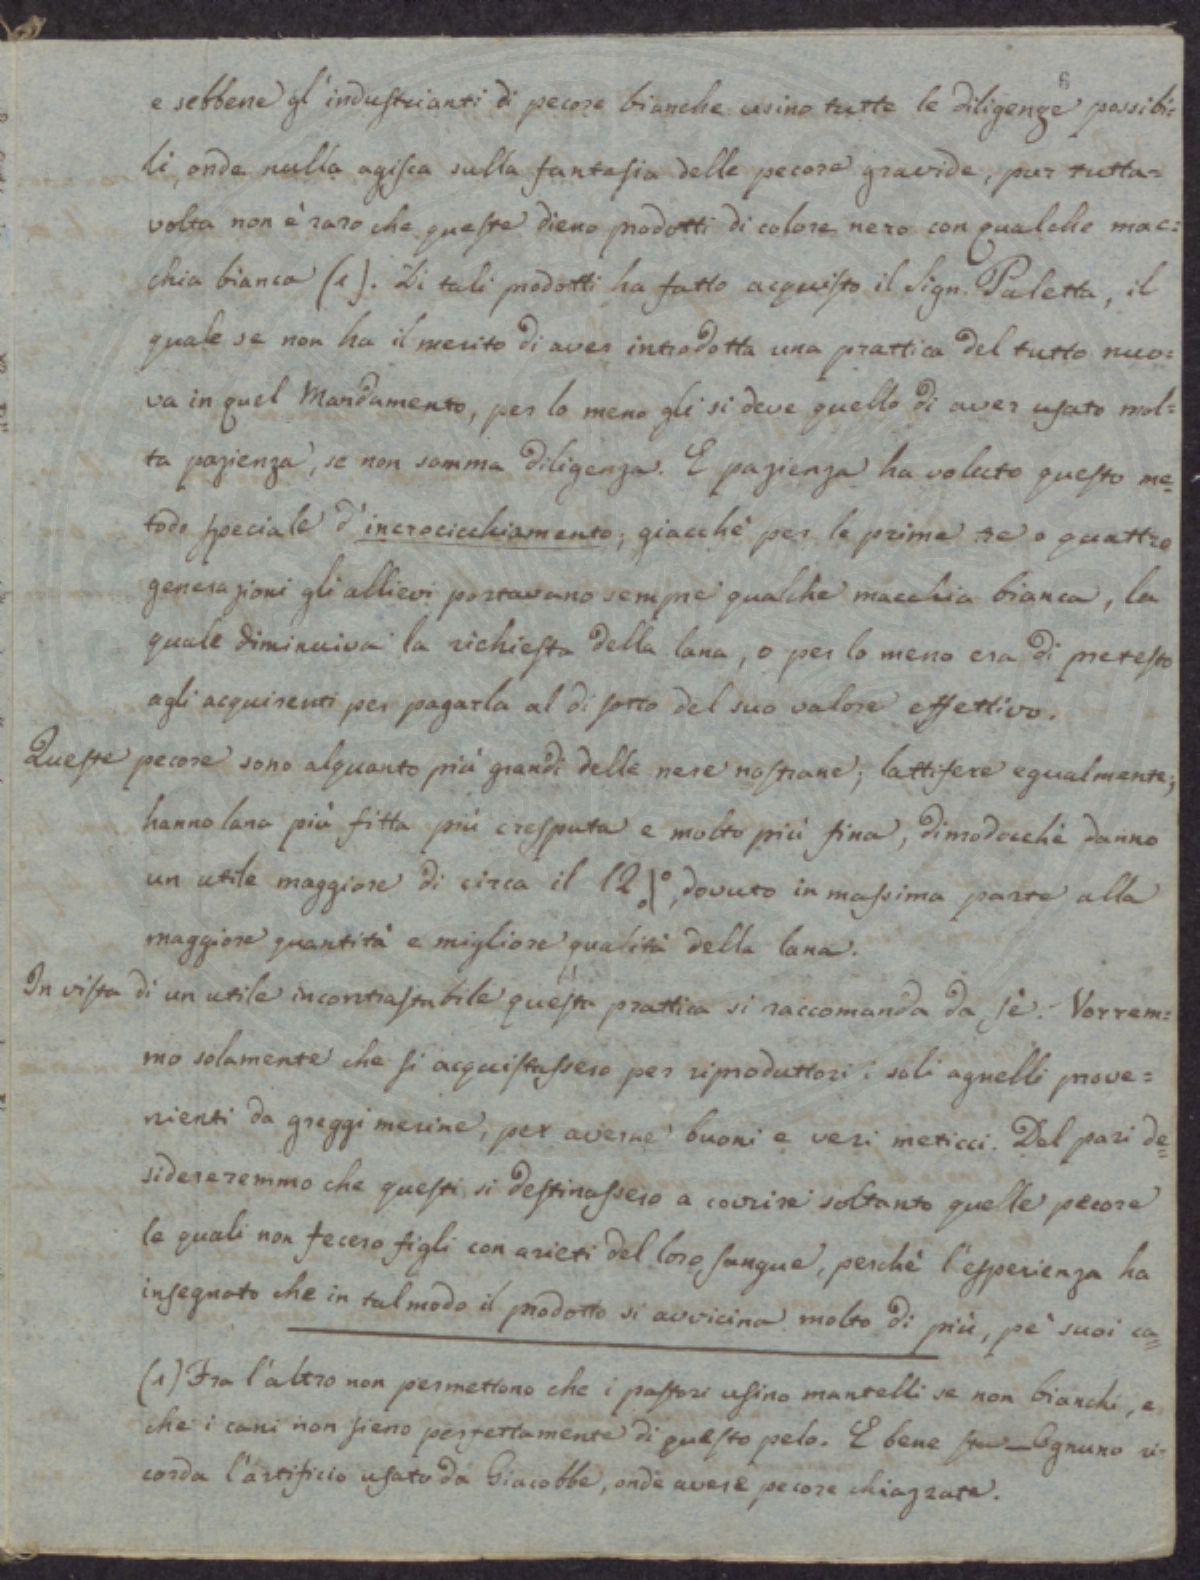 6
e sebbene gl'industrianti di pecore bianche usino tutte le diligenze possibi=
li, onde nulla agisca sulla fantasia delle pecore gravide, pur tutta=
volta non è raro che queste dieno prodotti di colore nero con qualche mac=
chia bianca (1). Di tali prodotti ha fatto acquisto il Sign. Paletta, il
quale se non ha il merito di aver introdotta una prattica del tutto nuo=
va in quel Mandamento, per lo meno gli si deve quello di aver usato mol=
ta pazienza, se non somma diligenza. E pazienza ha voluto questo me=
todo speciale d'incrocicchiamento; giacchè per le prime tre o quattro
generazioni gli allievi portavano sempre qualche macchia bianca, la
quale diminuiva la richiesta della lana, o per lo meno era di pretesto
agli acquirenti per pagarla al di sotto del suo valore effettivo.
Queste pecore sono alquanto più grandi delle nere nostrane; lattifere egualmente;
hanno lana più fitta più crespata e molto più fina, dimodocchè danno
un utile maggiore di circa il 12 %, dovuto in massima parte alla
maggiore quantità e migliore qualità della lana.
In vista di un utile incontrastabile questa prattica si raccomanda da sè. Vorrem=
mo solamente che si acquistassero per riproduttori i soli agnelli prove=
nienti da greggi merine, per averne buoni e veri meticci. Del pari de=
sidereremmo che questi si destinassero a covrire soltanto quelle pecore
le quali non fecero figli con arieti del loro sangue, perchè l'esperienza ha
insegnato che in tal modo il prodotto si avvicina molto di più, pe' suoi ca=
(1) Fra l'altro non permettono che i pastori usino mantelli se non bianchi, e
che i cani non sieno perfettamente di questo pelo. E bene sta_Ognuno ri=
corda l'artificio usato da Giacobbe, onde avere pecore chiazzate.